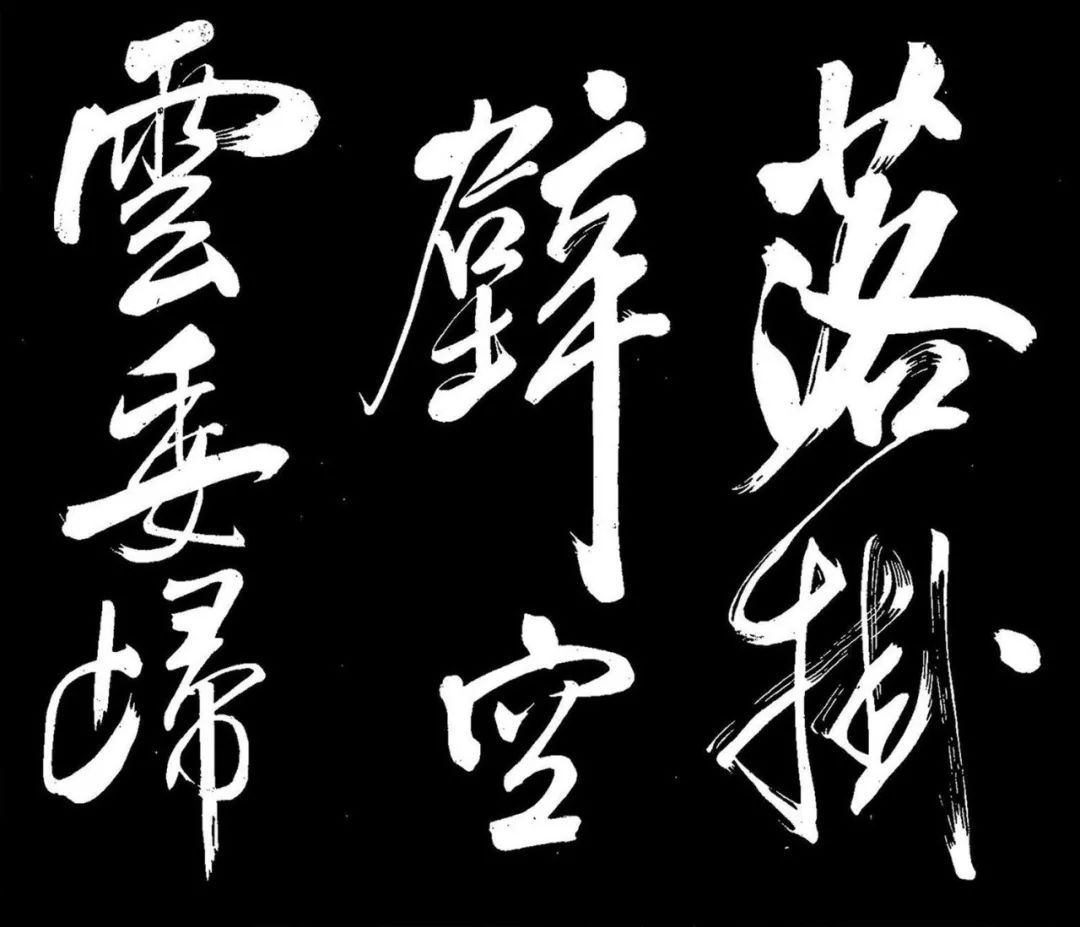 落掛
壁空
雲委歸